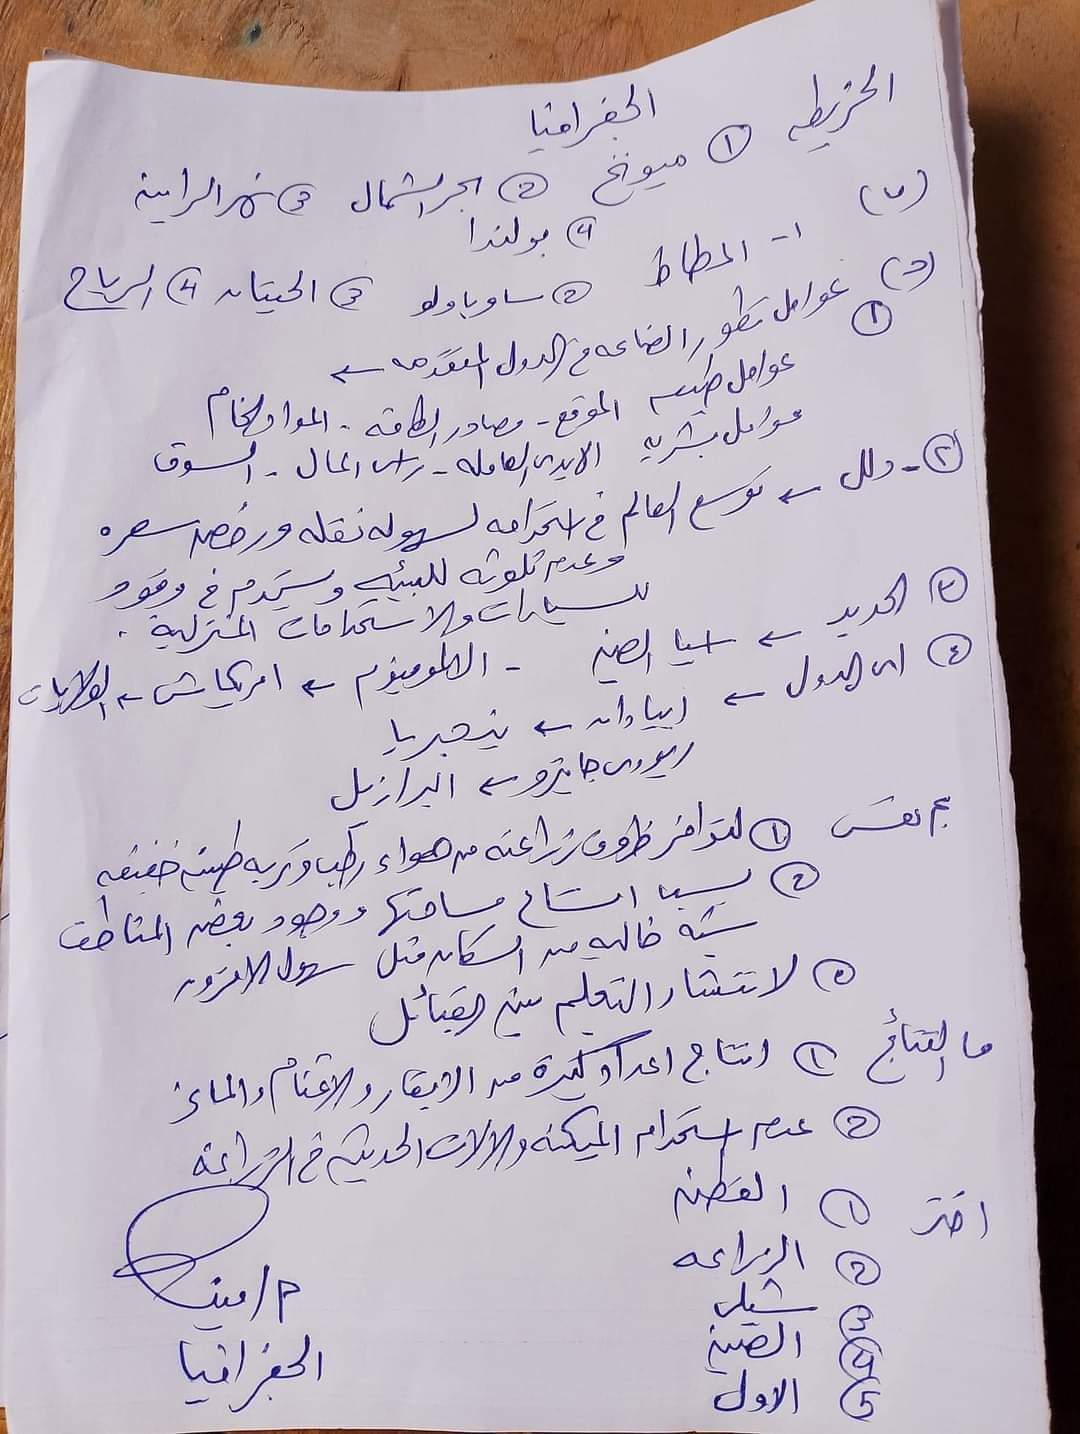 الجغرافيا
الخريطه ① ميونخ ② بحر الشمال ③ نهر الراين
④ بولندا
(ب)
١- المطاط ② ساوباولو ③ الحيتان ④ الرياح
(ج) ① عوامل تطور الصناعه في الدول المتقدمه ←
عوامل طبيعيه الموقع - مصادر الطاقه - المواد الخام
عوامل بشريه الايدى العامله - راس المال - السوق
②- دلل ← توسع العالم في استخدامه لسهوله نقله ورخص سعره
وعدم تلوثه للبيئه ويستخدم في وقود
السيارات والاستخدامات المنزلية .
③ الحديد ← اسيا الصين - الالومنيوم ← امريكا ش ← الولايات
④ اى الدول ← ايبادان ← نيجيريا
ريودى جانيرو ← البرازيل
بم تفسر ① لتوافر ظروف زراعته من هواء رطب وتربه طينيه خفيفه
② بسبب اتساع مساحتها ووجود بعض المناطق
شبه خاليه من السكان مثل سهول الامزون
③ لانتشار التعليم بين القبائل
ما النتائج ① انتاج اعداد كبيرة من الابقار والاغنام والماعز
② عدم استخدام الميكنه والالات الحديثه في الزراعة
اختر ① القطن
② الزراعه
③ شيلى
④ الصين
⑤ الاول
م/ مينا
الجغرافيا